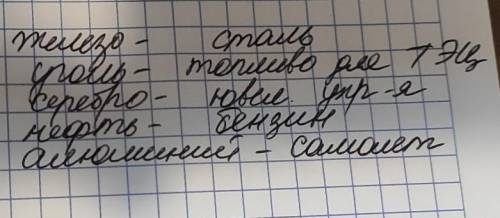 железо - сталь
уголь - топливо для ТЭЦ
серебро - ювел. укр-я
нефть - бензин
алюминий - самолет